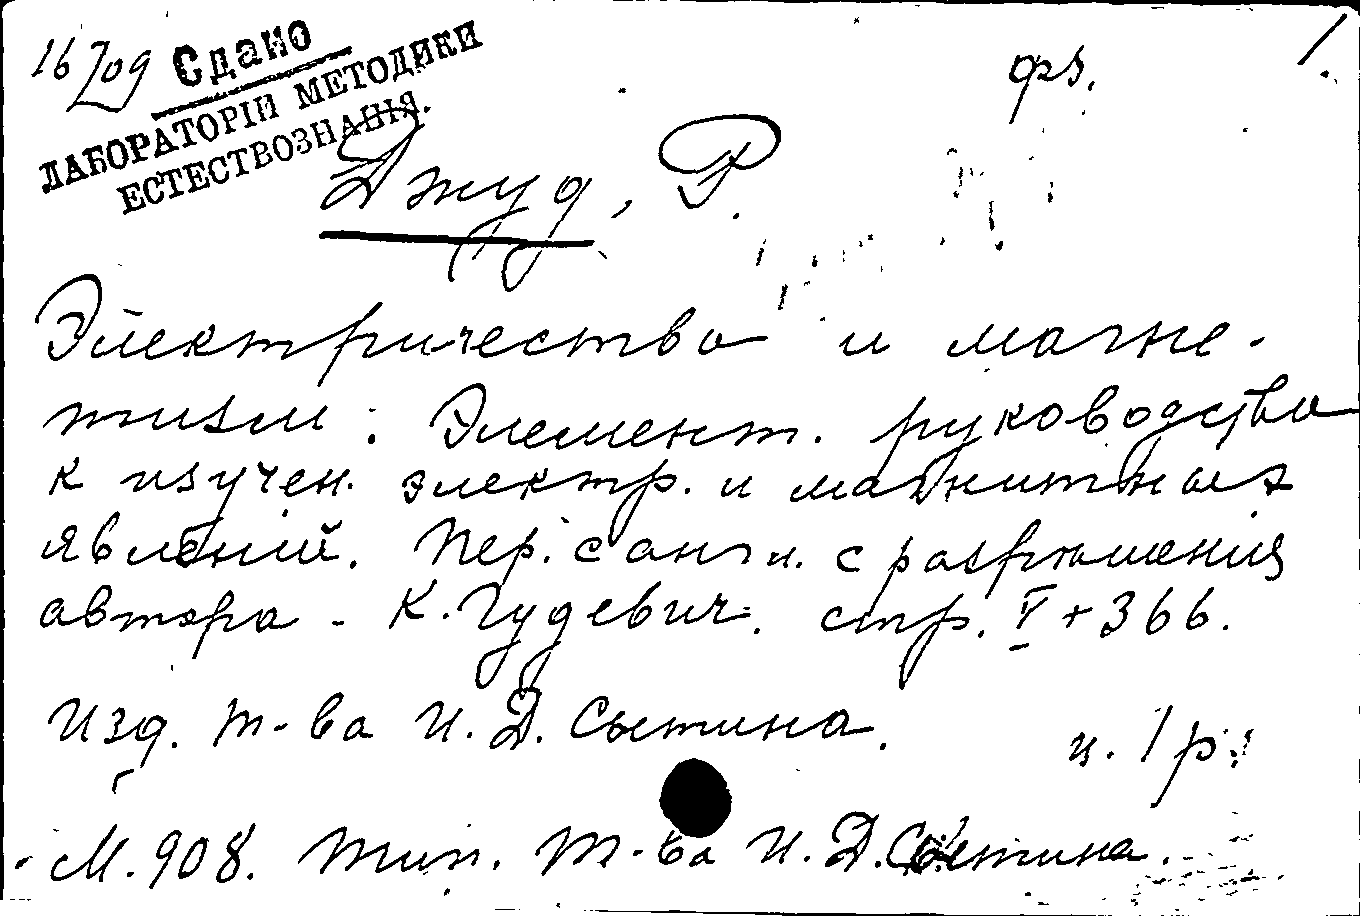 16/Iод
Сдано
ЛАБОРАТОРІИ МЕТОДИКИ
ЕСТЕСТВОЗНАНІЯ.
фз.
1.
Джуд, Р.
Электричество и магне-
тизм: Элемент. руководство
к изучен. электр. и магнитных
явлений. Пер. с англ. с разрешения
автора - К. Гудевич. стр. V + 366.
Изд. т-ва И. Д. Сытина.
ц. 1 р.
М. 908. Тип. т-ва И. Д. Сытина.